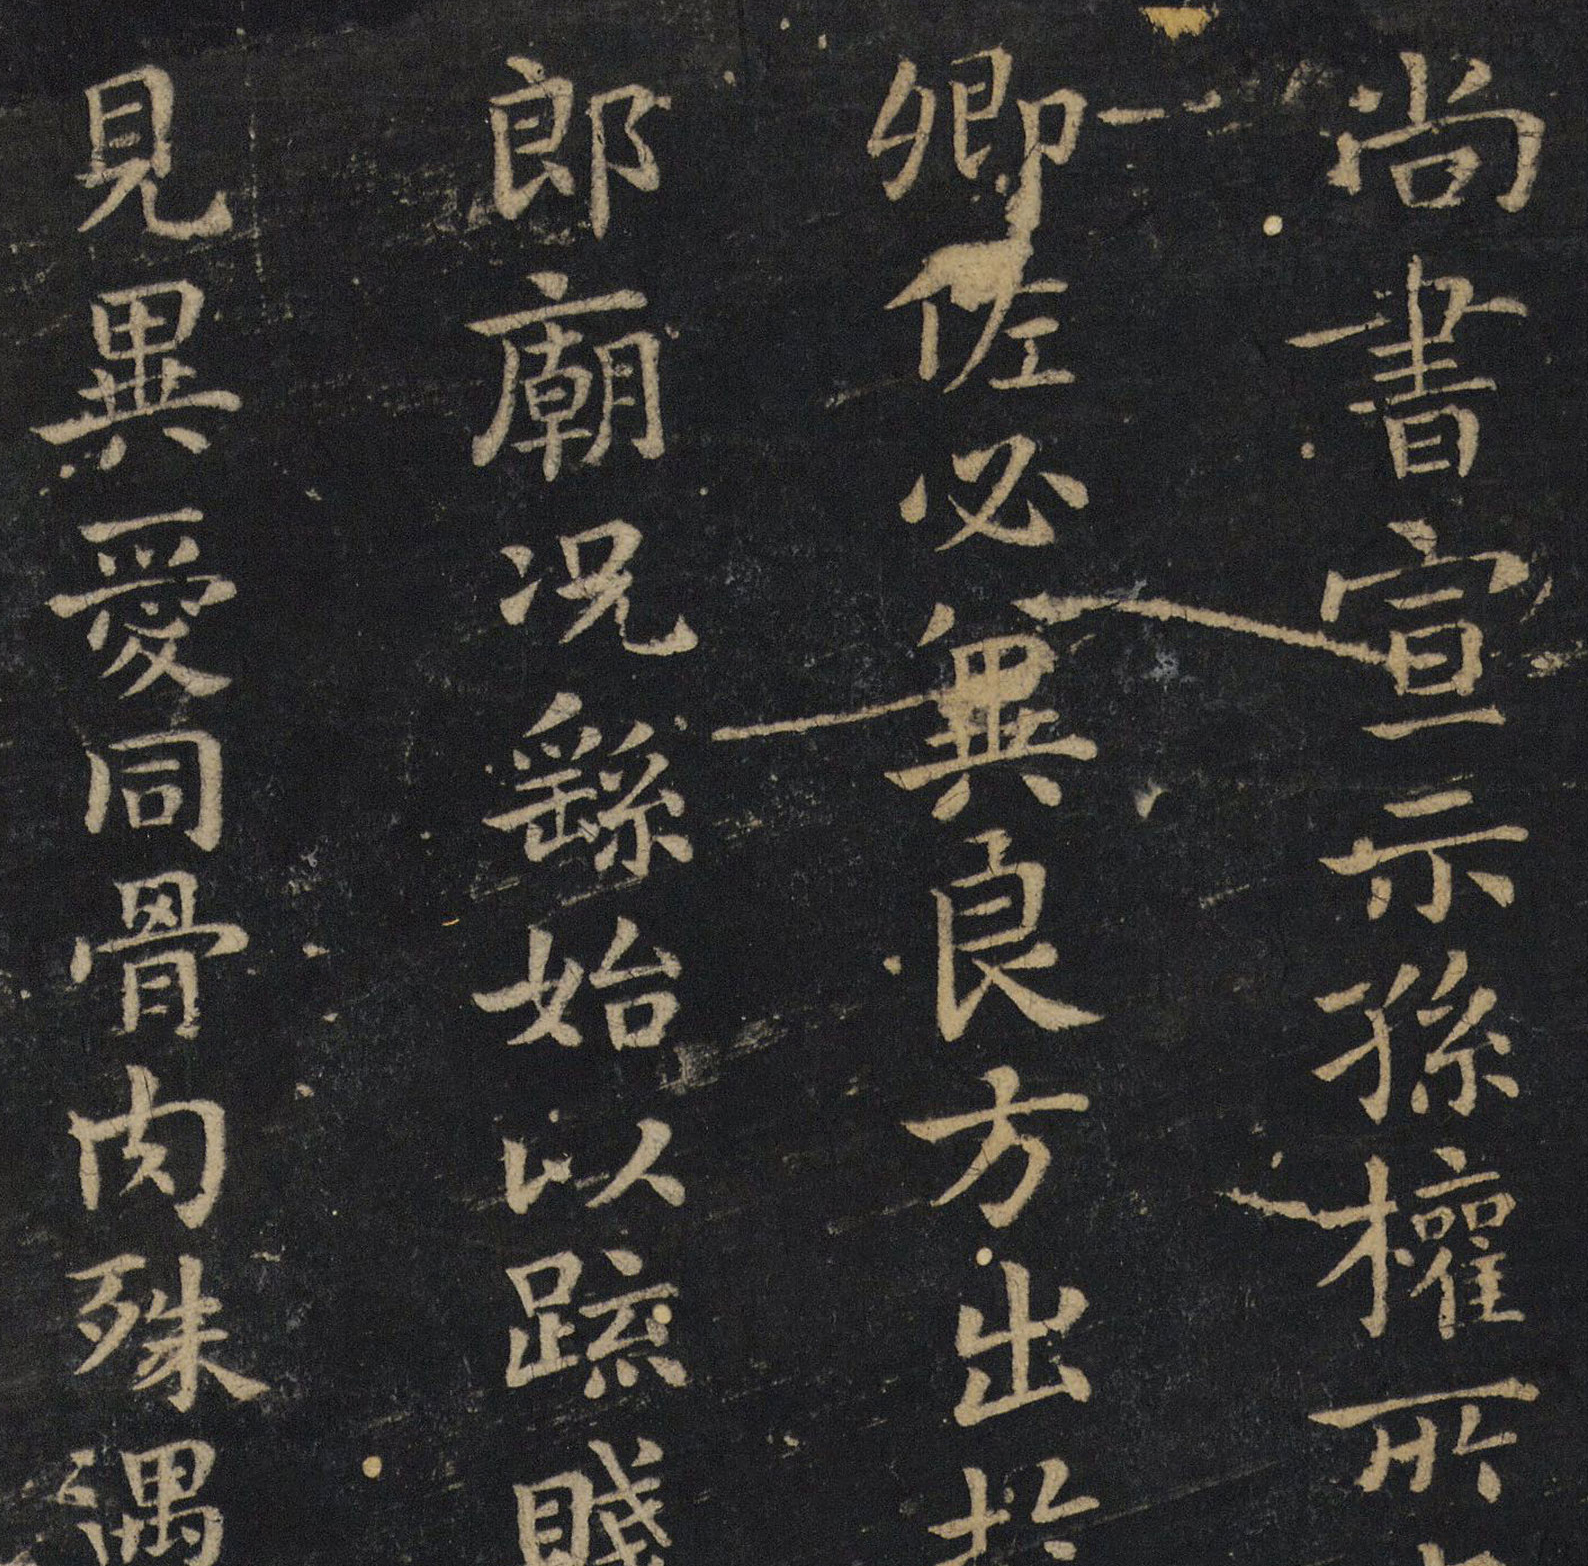 尚書宣示孫權所
卿佐必無良方出於
郎廟況繇始以疏賤
見異愛同骨肉殊遇